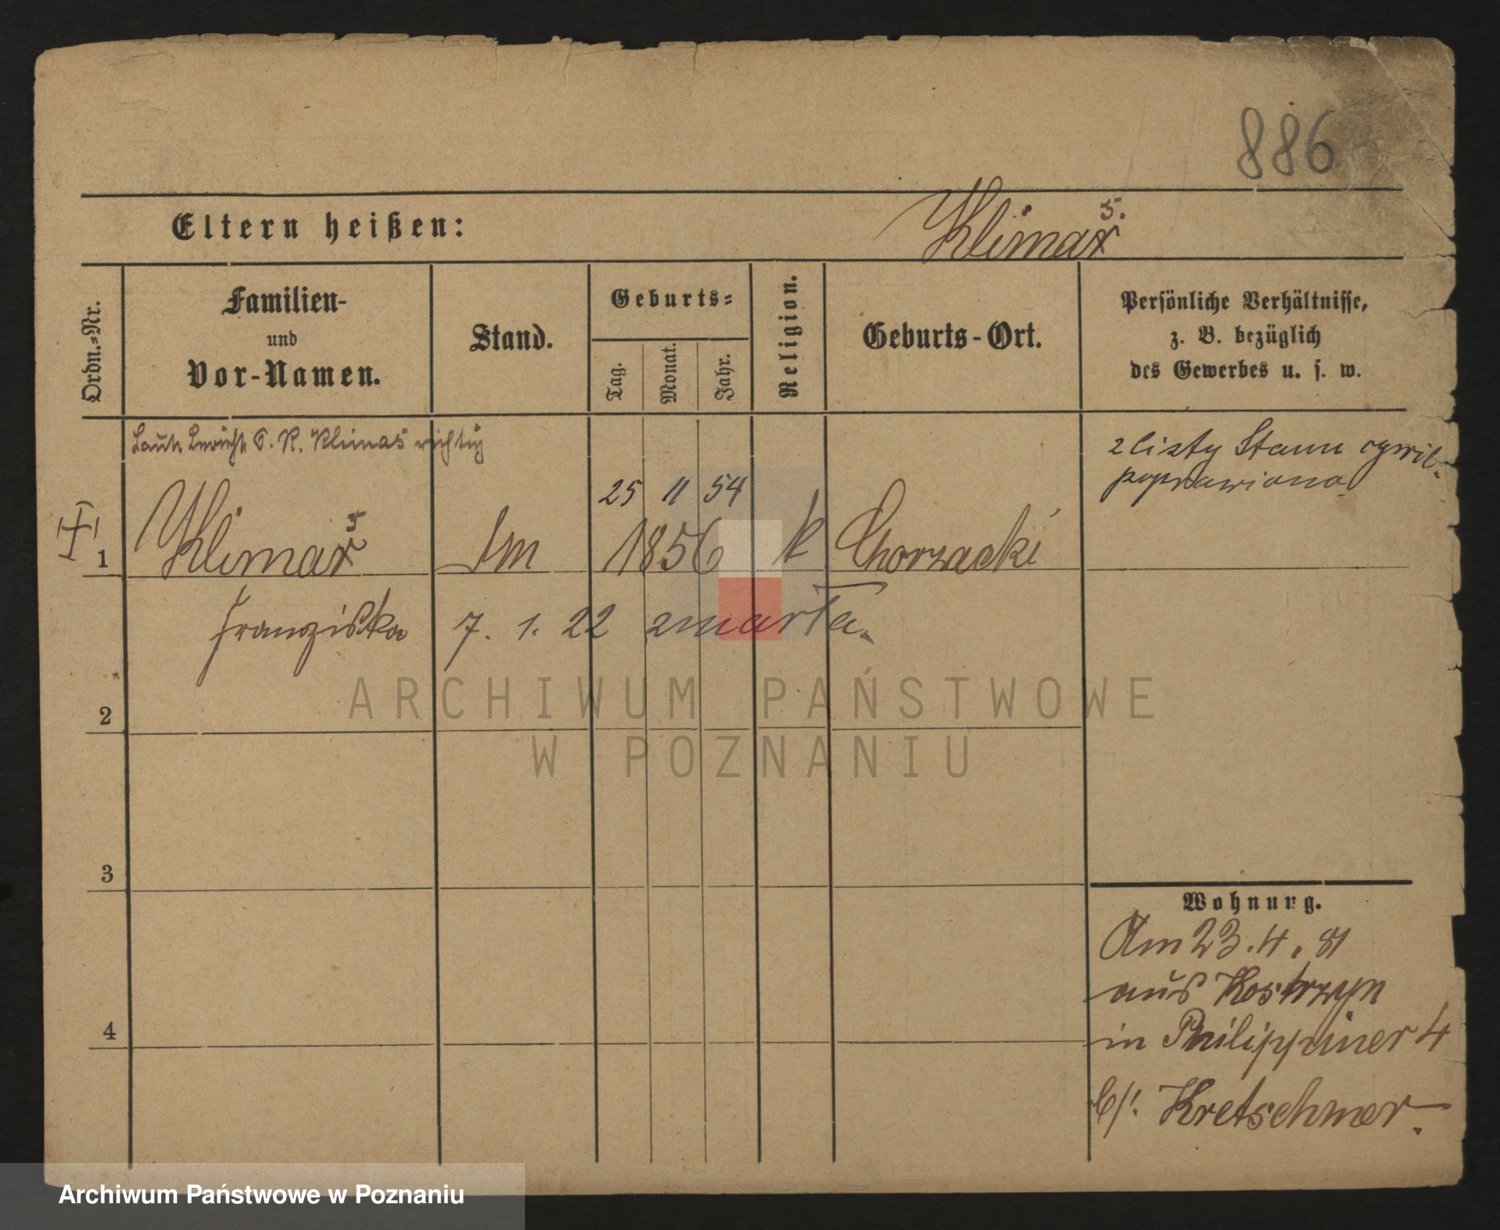 886
Eltern heißen: Klimas
Ordn.-Nr.
Familien-
und
Vor-Namen.
Stand.
Geburts-
Tag.
Monat.
Jahr.
Religion.
Geburts-Ort.
Persönliche Verhältnisse,
z. B. bezüglich
des Gewerbes u. s. w.
Laut Bericht Klimas richtig
z listy Stanu cywil.
poprawiono
25 11 54
1 Klimas 1856 k Chorzacki
Franziska 7. 1. 22 zmarła.
ARCHIWUM PAŃSTWOWE
W POZNANIU
2
3
4
Wohnung.
Am 23.4.81
aus Kostrzyn
in Philippiner 4
b/. Kretschmer.
Archiwum Państwowe w Poznaniu